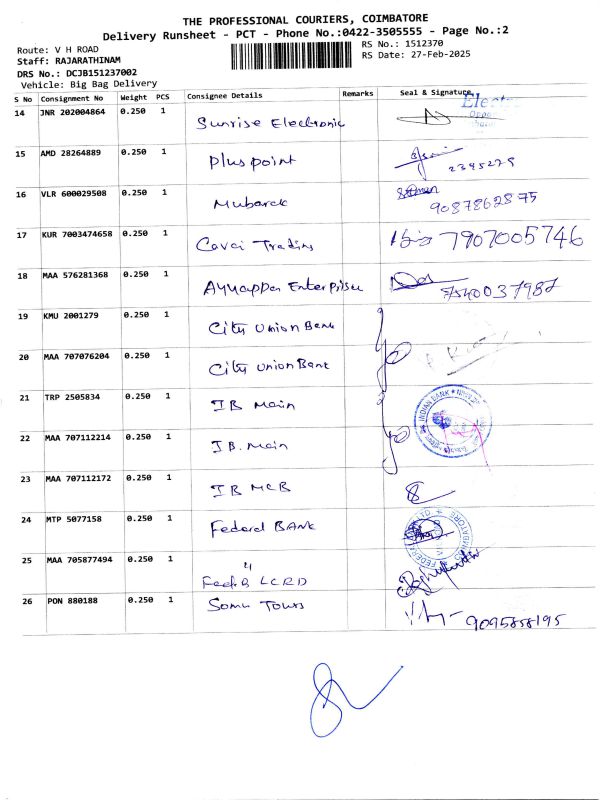 THE PROFESSIONAL COURIERS, COIMBATORE
Delivery Runsheet - PCT - Phone No.:0422-3505555 - Page No.:2
Route: V H ROAD
RS No.: 1512370
Staff: RAJARATHINAM
RS Date: 27-Feb-2025
DRS No.: DCJB151237002
Vehicle: Big Bag Delivery
S No Consignment No Weight PCS Consignee Details Remarks Seal & Signature
14 JNR 202004864 0.250 1 Sunrise Electronic
15 AMD 28264889 0.250 1 Pluspoint 2345279
16 VLR 600029508 0.250 1 Mubarak 9087862875
17 KUR 7003474658 0.250 1 Trading 7907005746
18 MAA 576281368 0.250 1 Ayyappa Enterprise 7540037987
19 KMU 2001279 0.250 1 City Union Bank
20 MAA 707076204 0.250 1 City Union Bank
21 TRP 2505834 0.250 1 IB Main INDIAN BANK
22 MAA 707112214 0.250 1 IB. Main
23 MAA 707112172 0.250 1 IB MCB
24 MTP 5077158 0.250 1 Federal BANK
25 MAA 705877494 0.250 1 " LCRD
26 PON 880188 0.250 1 Somu Tours 9095858195